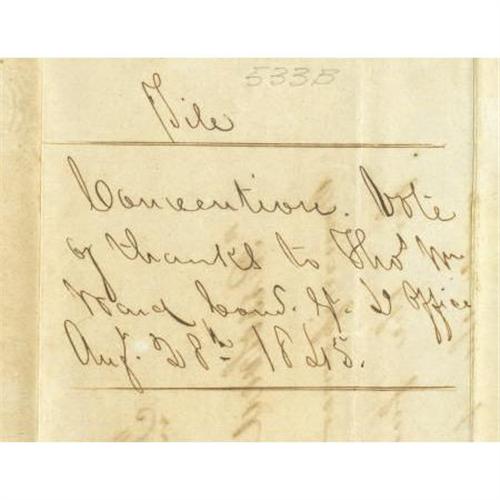 533B
File
Convention. Vote
of thanks to Thos Wm
Ward Com. G. L Office
Aug. 28th 1845.